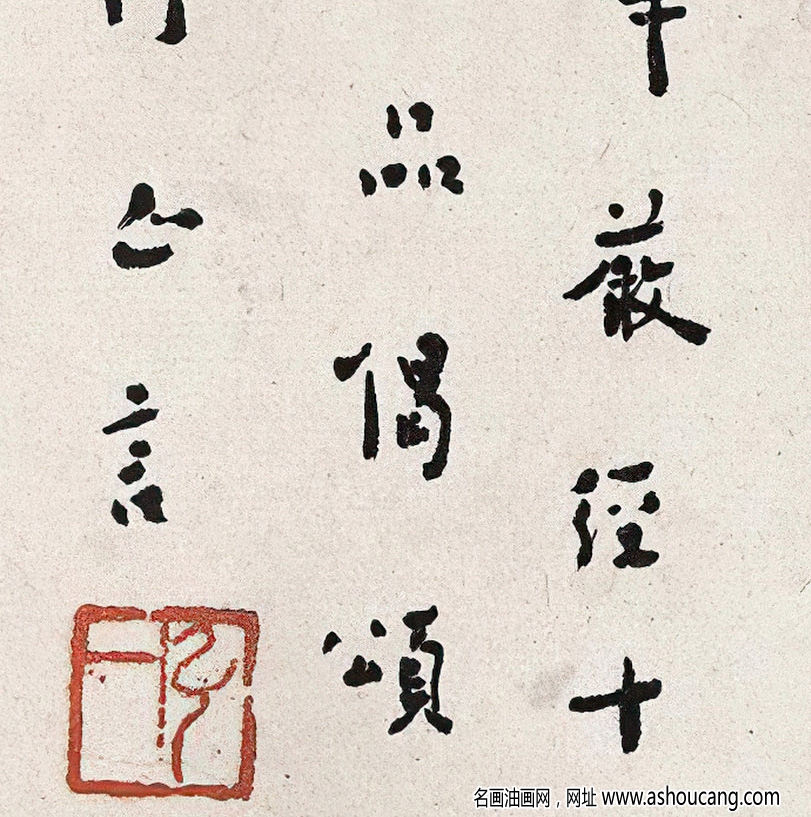 華嚴經十
品偈頌
言
名画油画网，网址 www.ashoucang.com